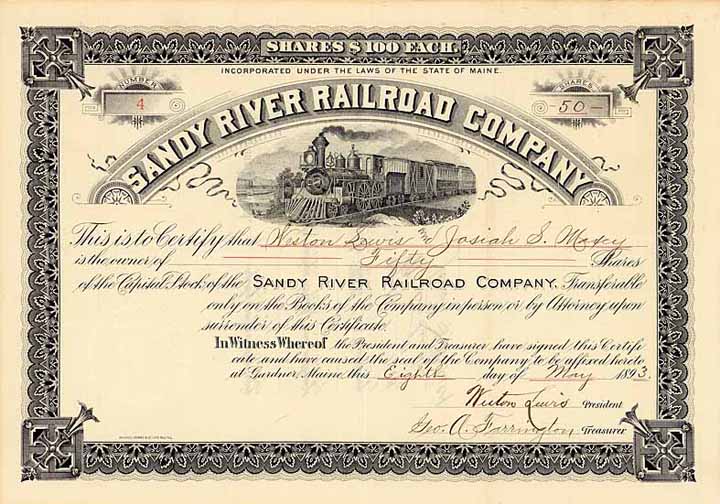 SHARES $100 EACH.
INCORPORATED UNDER THE LAWS OF THE STATE OF MAINE.
NUMBER
4
SHARES
50
SANDY RIVER RAILROAD COMPANY
This is to Certify that Weston Lewis and Josiah S. Maxcy
is the owner of Fifty Shares
of the Capital Stock of the SANDY RIVER RAILROAD COMPANY. Transferable
only on the Books of the Company in person or by Attorney upon
surrender of this Certificate.
In Witness Whereof the President and Treasurer have signed this Certifi
cate and have caused the seal of the Company to be affixed hereto
at Gardner, Maine this Eighth day of May 1893.
Weston Lewis President
Geo. A. Farrington Treasurer